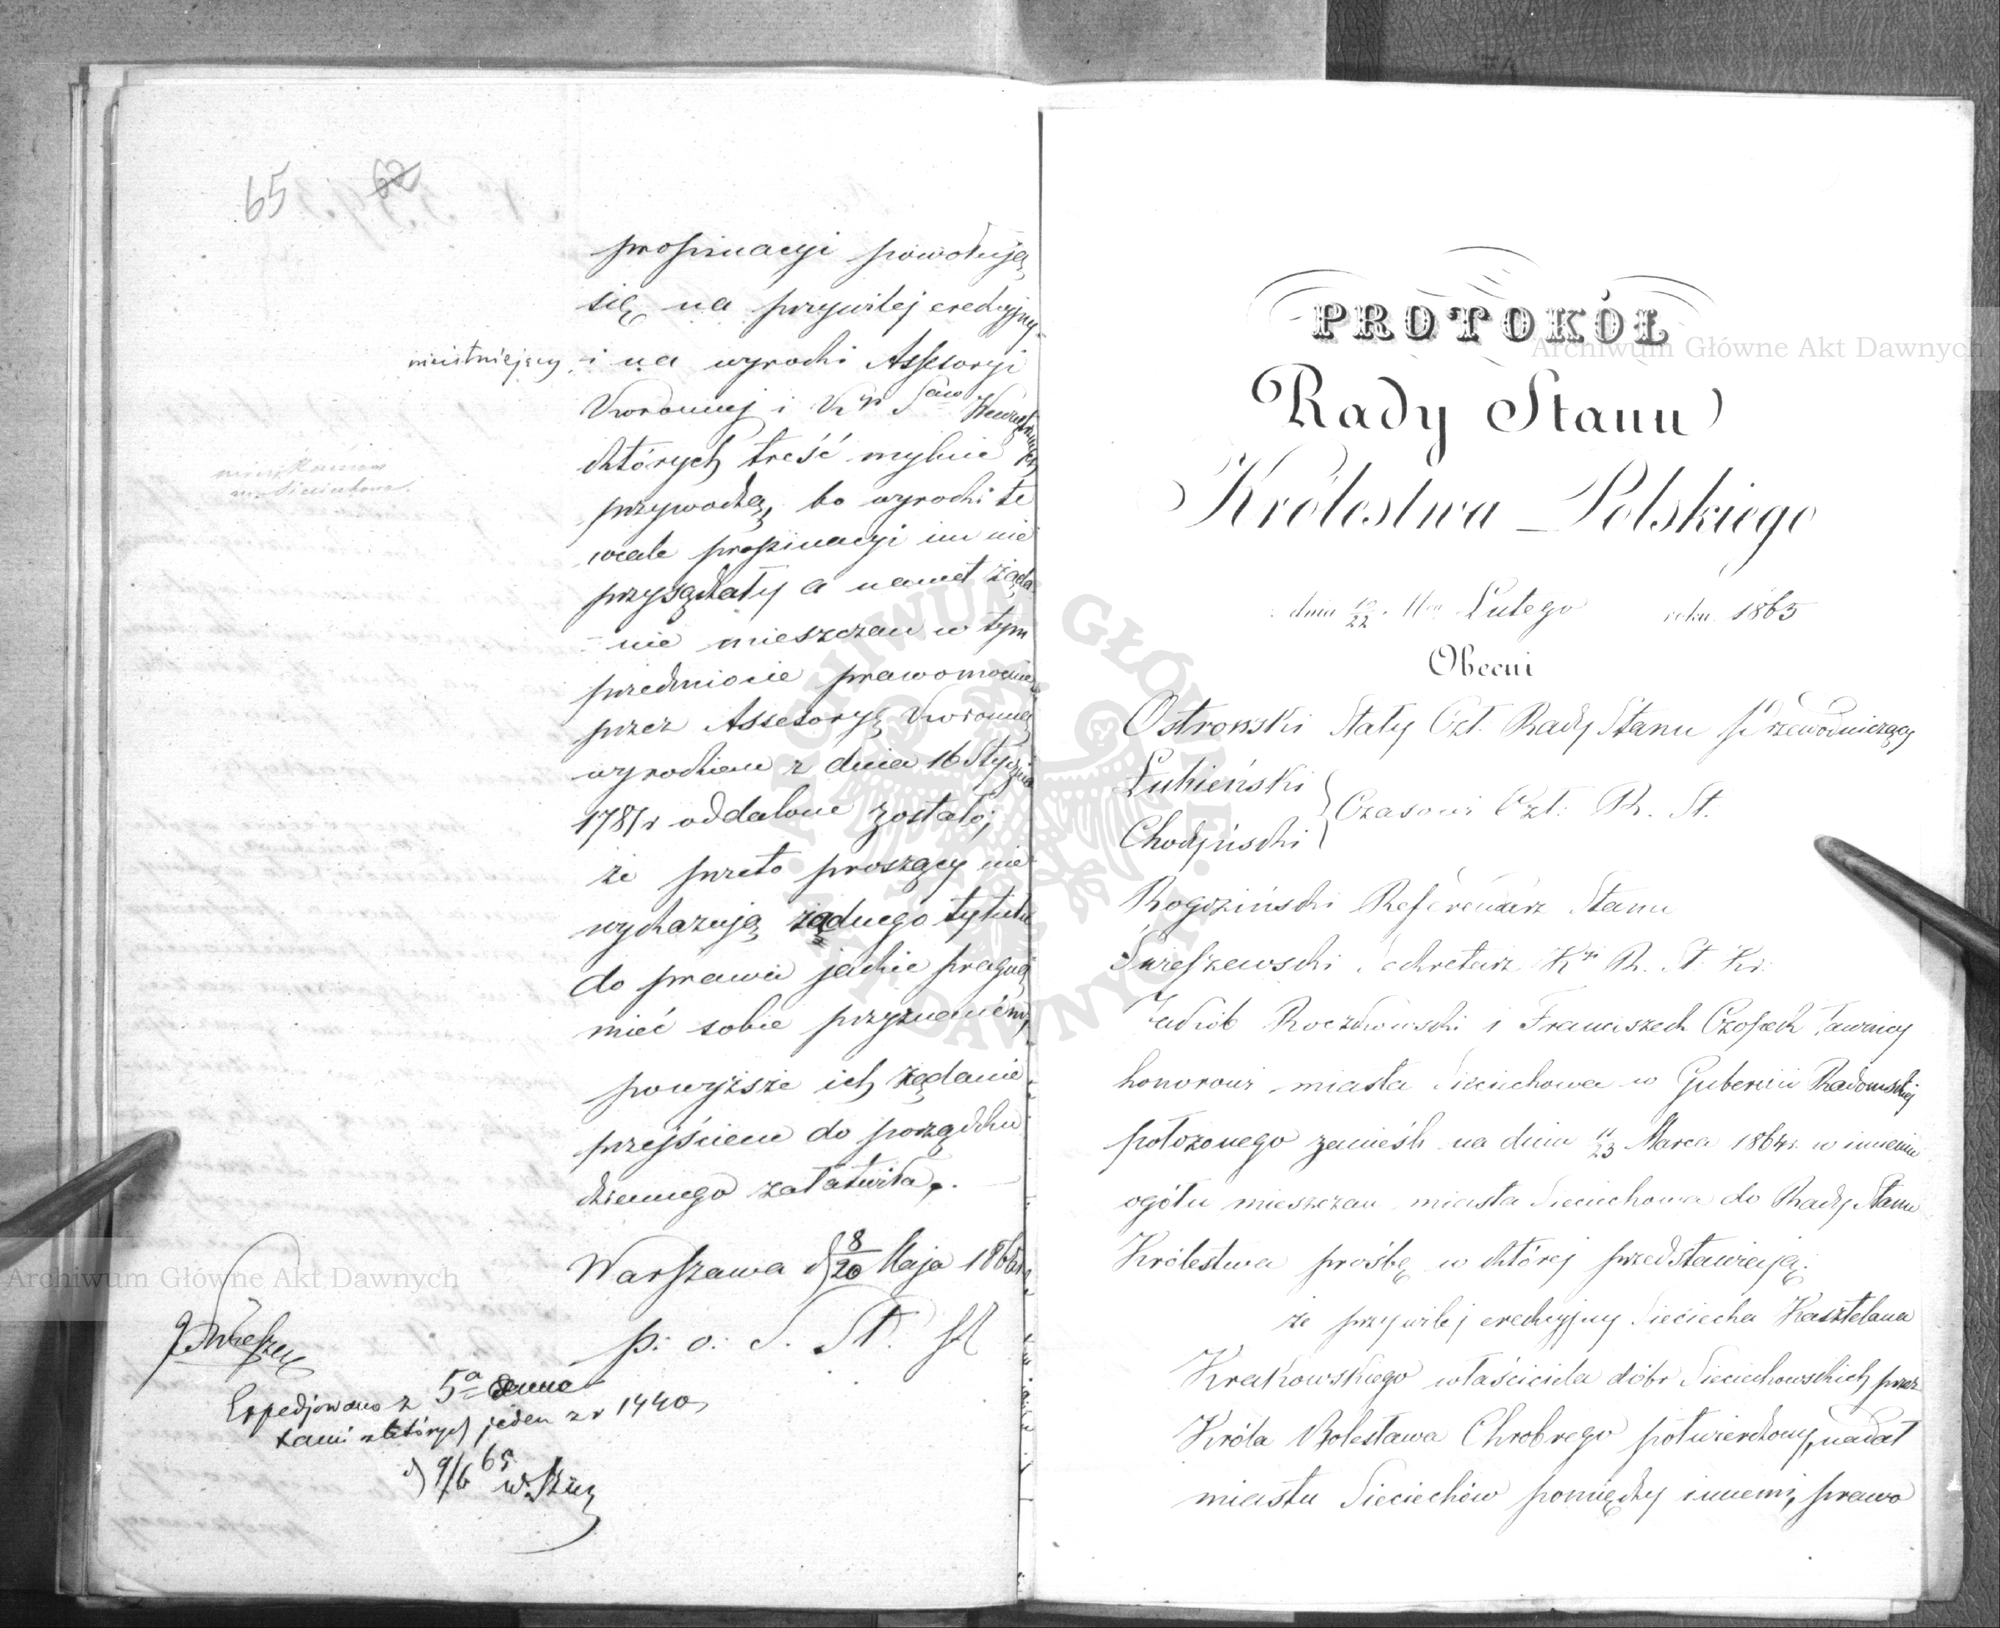 65 62
propinacyi powołują
się na przywilej erekcyjny
nieistniejący, i na wyroki Assesoryi
Koronnej i
których treść mylnie
przywodzą, bo wyroki te
wcale propinacyi im nie
przysądzały a nawet żąda
nie mieszczan w tym
przedmiocie prawomocnie
przez Assesoryę Koronną
wyrokiem z dnia 16 Stycznia
1781 r oddalone zostało;
że przeto proszący nie
wykazują żadnego tytułu
do prawa jakie pragną
mieć sobie przyznanem,
powyższe ich żądanie
przejściem do porządku
dziennego załatwiła.
Warszawa d 8/20 Maja 186
p: o: S. St.
Expedjowano z 5a
tami z których jeden z r 1440
d 9/6 65
PROTOKÓŁ
Rady Stanu
Królestwa Polskiego
dnia 10/22 Lutego roku 1865
Obecni
Ostrowski Stały Czł. Rady Stanu Przewodniczący
Łubieński
Chodyński Czasowi Czł: R. St.
Rogoziński Referendarz Stanu
Sekretarz R. St. Kr.
Jakób i Franciszek Czopek Ławnicy
honorowi miasta Sieciechowa w Gubernii Radomskiej
położonego zanieśli na dniu 11/23 Marca 1864 r. w imieniu
ogółu mieszczan miasta Sieciechowa do Rady Stanu
Królestwa prośbę w której przedstawiają:
że przywilej erekcyjny Sieciecha Kasztelana
Krakowskiego właściciela dóbr Sieciechowskich przez
Króla Bolesława Chrobrego potwierdzony, nadał
miastu Sieciechów pomiędzy innemi, prawo
Archiwum Główne Akt Dawnych
Archiwum Główne Akt Dawnych
ARCHIWUM GŁÓWNE AKT DAWNYCH